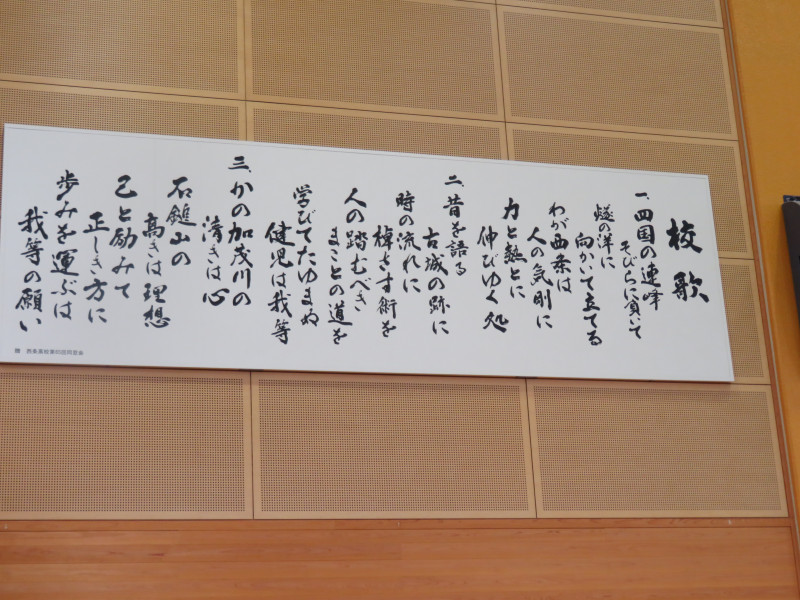 校歌
一、四国の連峰
そびらに負いて
燧の洋に
向かいて立てる
わが西条は
人の気剛に
力と熱とに
伸びゆく処
二、昔を語る
古城の跡に
時の流れに
棹さす術を
人の踏むべき
まことの道を
学びてたゆまぬ
健児は我等
三、かの加茂川の
清きは心
石鎚山の
高きは理想
己と励みて
正しき方に
歩みを運ぶは
我等の願い
贈 西条高校第40回同窓会